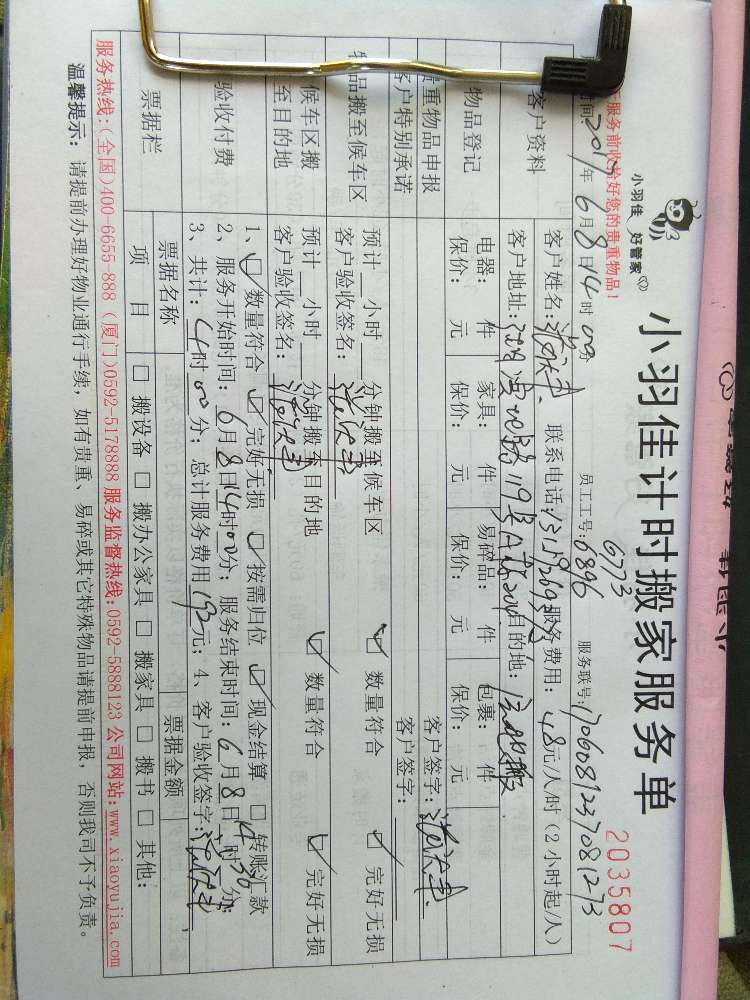 小羽佳 好管家
小羽佳计时搬家服务单
2035807
服务前收拾好您的贵重物品!
6773
2017年6月8日14时00分 员工工号:6896 服务联号:
客户资料
客户姓名: 联系电话: 服务费用:48元/人/时(2小时起/人)
客户地址: 119号 目的地:
物品登记
电器: 件 家具: 件 易碎品: 件 包裹: 件
保价: 元 保价: 元 保价: 元 保价: 元
重物品申报 客户签字:
客户特别承诺 客户签字:
品搬至候车区
预计__小时__分钟搬至候车区 ☑ 数量符合 ☑ 完好无损
客户验收签名:
候车区搬至目的地
预计__小时__分钟搬至目的地 ☑ 数量符合 ☑ 完好无损
客户验收签名:
验收付费
1、☑ 数量符合 ☑ 完好无损 ☑ 按需归位 ☑ 现金结算 □ 转账汇款
2、服务开始时间:6月8日14时00分;服务结束时间:6月8日 时 分;
3、共计:4时00分;总计服务费用192元;4、客户验收签字:
票据栏
票据名称 票据金额
项 目 □ 搬设备 □ 搬办公家具 □ 搬家具 □ 搬书 □ 其他:
服务热线:(全国)400-6655-888 (厦门)0592-5178888 服务监督热线:0592-5888123 公司网站:www.xiaoyujia.com
温馨提示:请提前办理好物业通行手续,如有贵重、易碎或其它特殊物品请提前申报,否则我司不予负责。